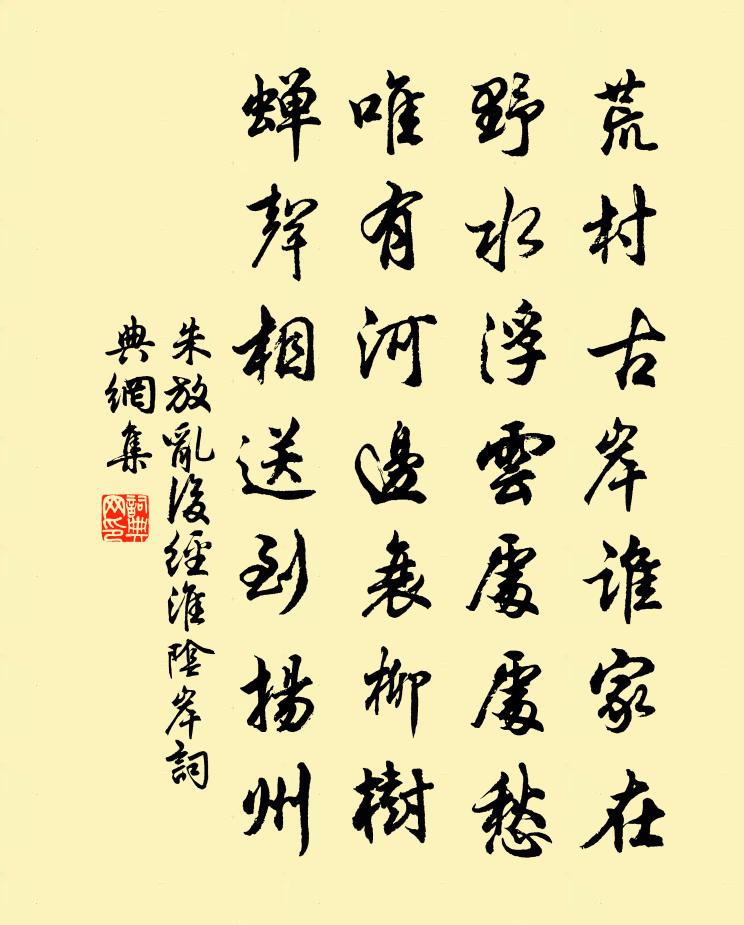 荒村古岸誰家在
野水浮雲處處愁
唯有河邊衰柳樹
蟬聲相送到揚州
朱放亂後經淮陰岸詞
典網集
詞典
网印